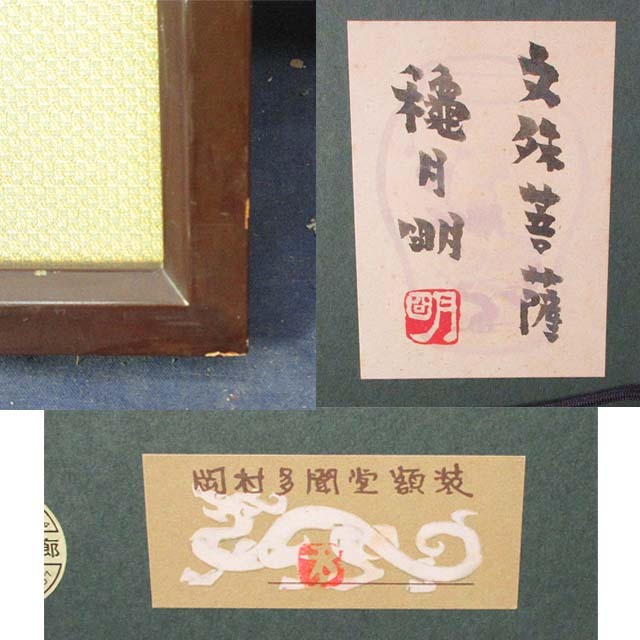 文殊菩薩
穐月明
明
岡村多聞堂額装
廊